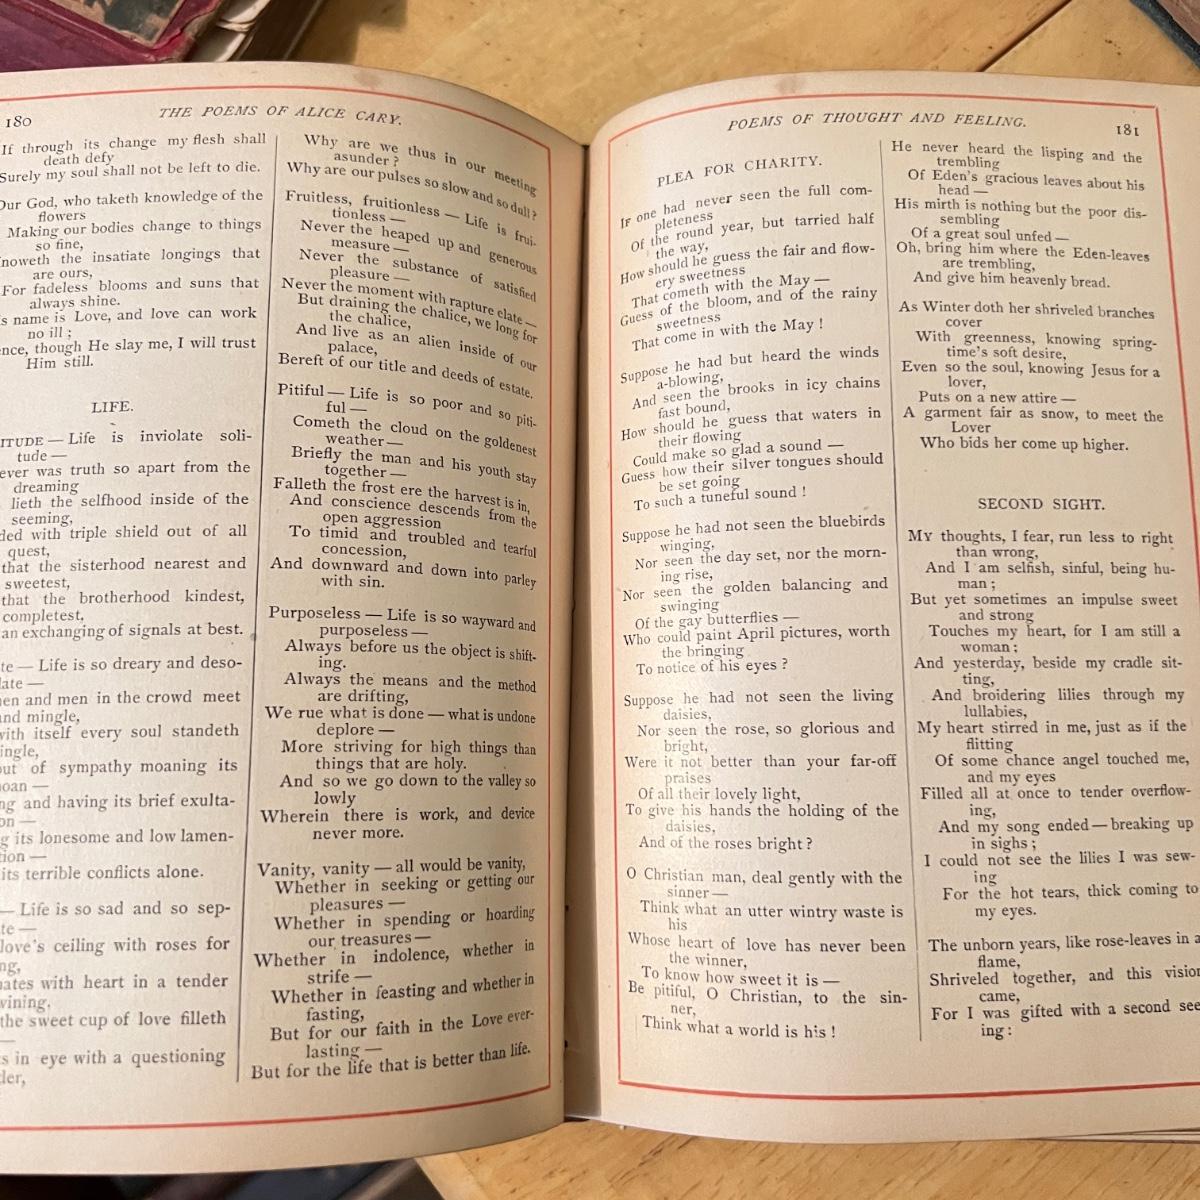 180
THE POEMS OF ALICE CARY.
If through its change my flesh shall
death defy
Surely my soul shall not be left to die.
Our God, who taketh knowledge of the
flowers
Making our bodies change to things
so fine,
noweth the insatiate longings that
are ours,
For fadeless blooms and suns that
always shine.
s name is Love, and love can work
no ill;
nce, though He slay me, I will trust
Him still.
LIFE.
ITUDE — Life is inviolate soli-
tude —
ever was truth so apart from the
dreaming
lieth the selfhood inside of the
seeming,
ded with triple shield out of all
quest,
that the sisterhood nearest and
sweetest,
that the brotherhood kindest,
completest,
an exchanging of signals at best.
te — Life is so dreary and deso-
late —
en and men in the crowd meet
nd mingle,
with itself every soul standeth
ingle,
out of sympathy moaning its
oan —
ng and having its brief exulta-
on —
g its lonesome and low lamen-
tion —
its terrible conflicts alone.
— Life is so sad and so sep-
te —
love's ceiling with roses for
ng,
ates with heart in a tender
vining,
the sweet cup of love filleth
—
s in eye with a questioning
der,
Why are we thus in our meeting
asunder?
Why are our pulses so slow and so dull?
Fruitless, fruitionless — Life is frui-
tionless —
Never the heaped up and generous
measure —
Never the substance of satisfied
pleasure —
Never the moment with rapture elate —
But draining the chalice, we long for
the chalice,
And live as an alien inside of our
palace,
Bereft of our title and deeds of estate.
Pitiful — Life is so poor and so piti-
ful —
Cometh the cloud on the goldenest
weather —
Briefly the man and his youth stay
together —
Falleth the frost ere the harvest is in,
And conscience descends from the
open aggression
To timid and troubled and tearful
concession,
And downward and down into parley
with sin.
Purposeless — Life is so wayward and
purposeless —
Always before us the object is shift-
ing.
Always the means and the method
are drifting,
We rue what is done — what is undone
deplore —
More striving for high things than
things that are holy.
And so we go down to the valley so
lowly
Wherein there is work, and device
never more.
Vanity, vanity — all would be vanity,
Whether in seeking or getting our
pleasures —
Whether in spending or hoarding
our treasures —
Whether in indolence, whether in
strife —
Whether in feasting and whether in
fasting,
But for our faith in the Love ever-
lasting —
But for the life that is better than life.
POEMS OF THOUGHT AND FEELING.
181
PLEA FOR CHARITY.
IF one had never seen the full com-
pleteness
Of the round year, but tarried half
the way,
How should he guess the fair and flow-
ery sweetness
That cometh with the May —
Guess of the bloom, and of the rainy
sweetness
That come in with the May!
Suppose he had but heard the winds
a-blowing,
And seen the brooks in icy chains
fast bound,
How should he guess that waters in
their flowing
Could make so glad a sound —
Guess how their silver tongues should
be set going
To such a tuneful sound!
Suppose he had not seen the bluebirds
winging,
Nor seen the day set, nor the morn-
ing rise,
Nor seen the golden balancing and
swinging
Of the gay butterflies —
Who could paint April pictures, worth
the bringing
To notice of his eyes?
Suppose he had not seen the living
daisies,
Nor seen the rose, so glorious and
bright,
Were it not better than your far-off
praises
Of all their lovely light,
To give his hands the holding of the
daisies,
And of the roses bright?
O Christian man, deal gently with the
sinner —
Think what an utter wintry waste is
his
Whose heart of love has never been
the winner,
To know how sweet it is —
Be pitiful, O Christian, to the sin-
ner,
Think what a world is his!
He never heard the lisping and the
trembling
Of Eden's gracious leaves about his
head —
His mirth is nothing but the poor dis-
sembling
Of a great soul unfed —
Oh, bring him where the Eden-leaves
are trembling,
And give him heavenly bread.
As Winter doth her shriveled branches
cover
With greenness, knowing spring-
time's soft desire,
Even so the soul, knowing Jesus for a
lover,
Puts on a new attire —
A garment fair as snow, to meet the
Lover
Who bids her come up higher.
SECOND SIGHT.
MY thoughts, I fear, run less to right
than wrong,
And I am selfish, sinful, being hu-
man;
But yet sometimes an impulse sweet
and strong
Touches my heart, for I am still a
woman;
And yesterday, beside my cradle sit-
ting,
And broidering lilies through my
lullabies,
My heart stirred in me, just as if the
flitting
Of some chance angel touched me,
and my eyes
Filled all at once to tender overflow-
ing,
And my song ended — breaking up
in sighs;
I could not see the lilies I was sew-
ing
For the hot tears, thick coming to
my eyes.
The unborn years, like rose-leaves in a
flame,
Shriveled together, and this vision
came,
For I was gifted with a second see
ing: